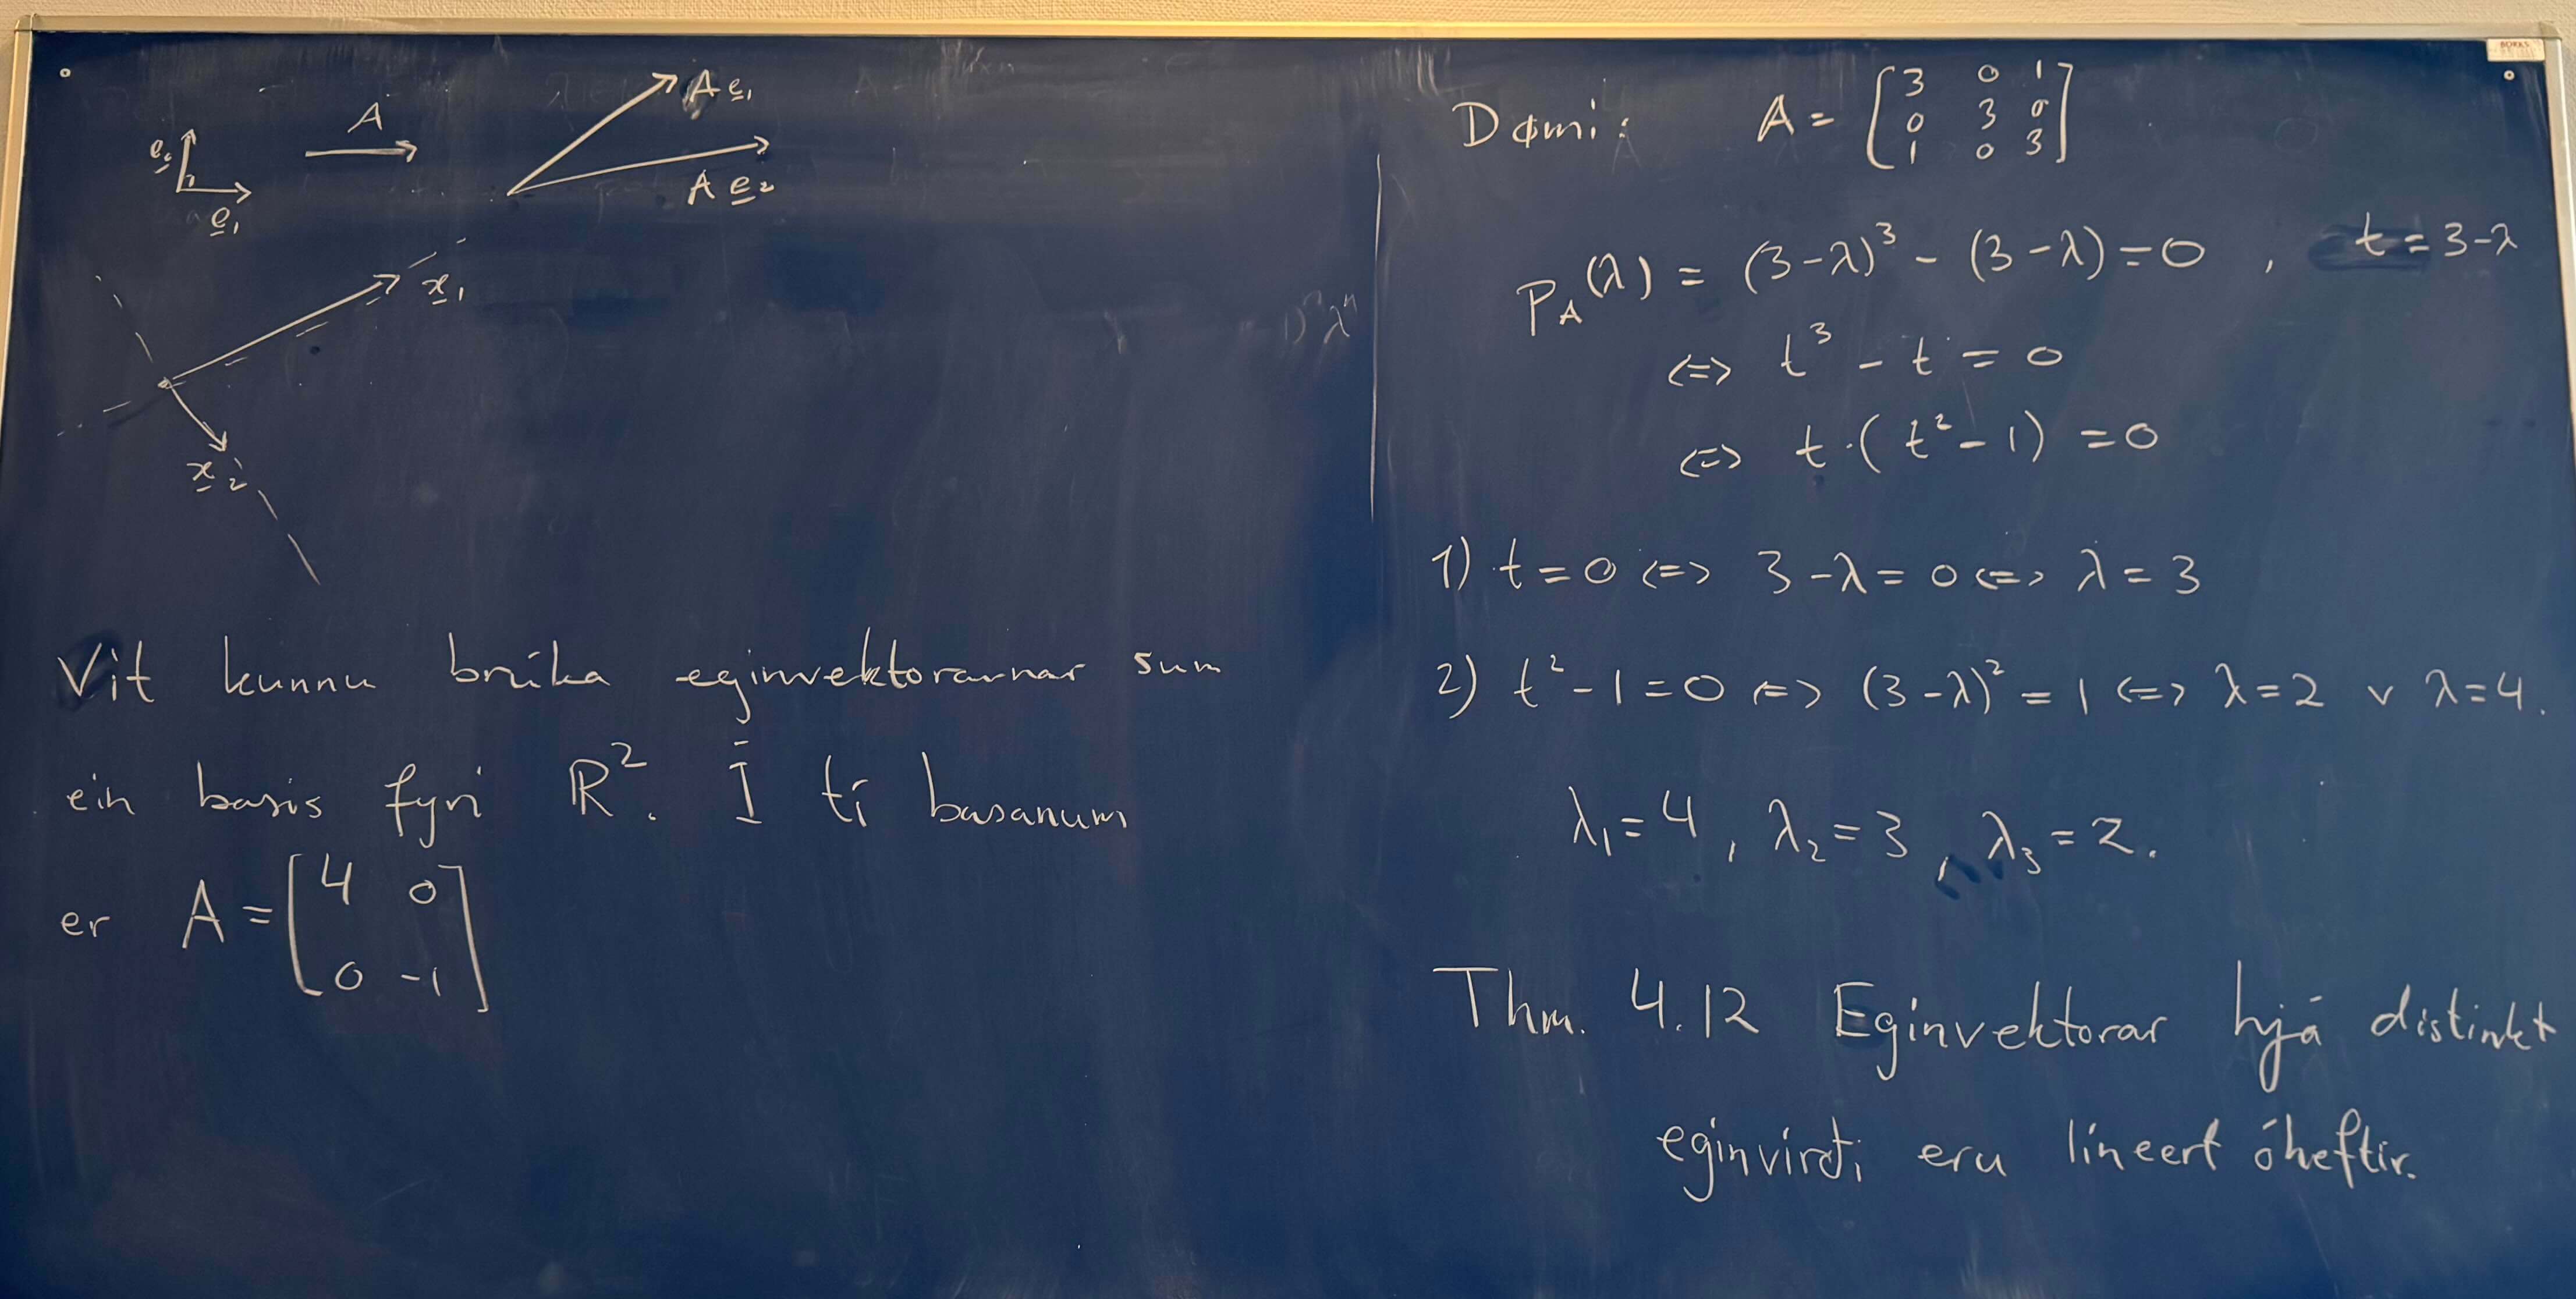 A
A e̲₁
e̲₂
e̲₁
A e̲₂
x̲₁
x̲₂
Vit kunnu brúka eginvektorarnar sum
ein basis fyri ℝ². Í tí basanum
er A = [4 0
0 -1]
Dømi: A = [3 0 1
0 3 0
1 0 3]
P_A(λ) = (3-λ)³ - (3-λ) = 0 , t = 3-λ
<=> t³ - t = 0
<=> t·(t² - 1) = 0
1) t = 0 <=> 3-λ = 0 <=> λ = 3
2) t² - 1 = 0 <=> (3-λ)² = 1 <=> λ = 2 ∨ λ = 4.
λ₁ = 4, λ₂ = 3, λ₃ = 2.
Thm. 4.12 Eginvektorar hjá distinkt
eginvirði eru lineert óheftir.